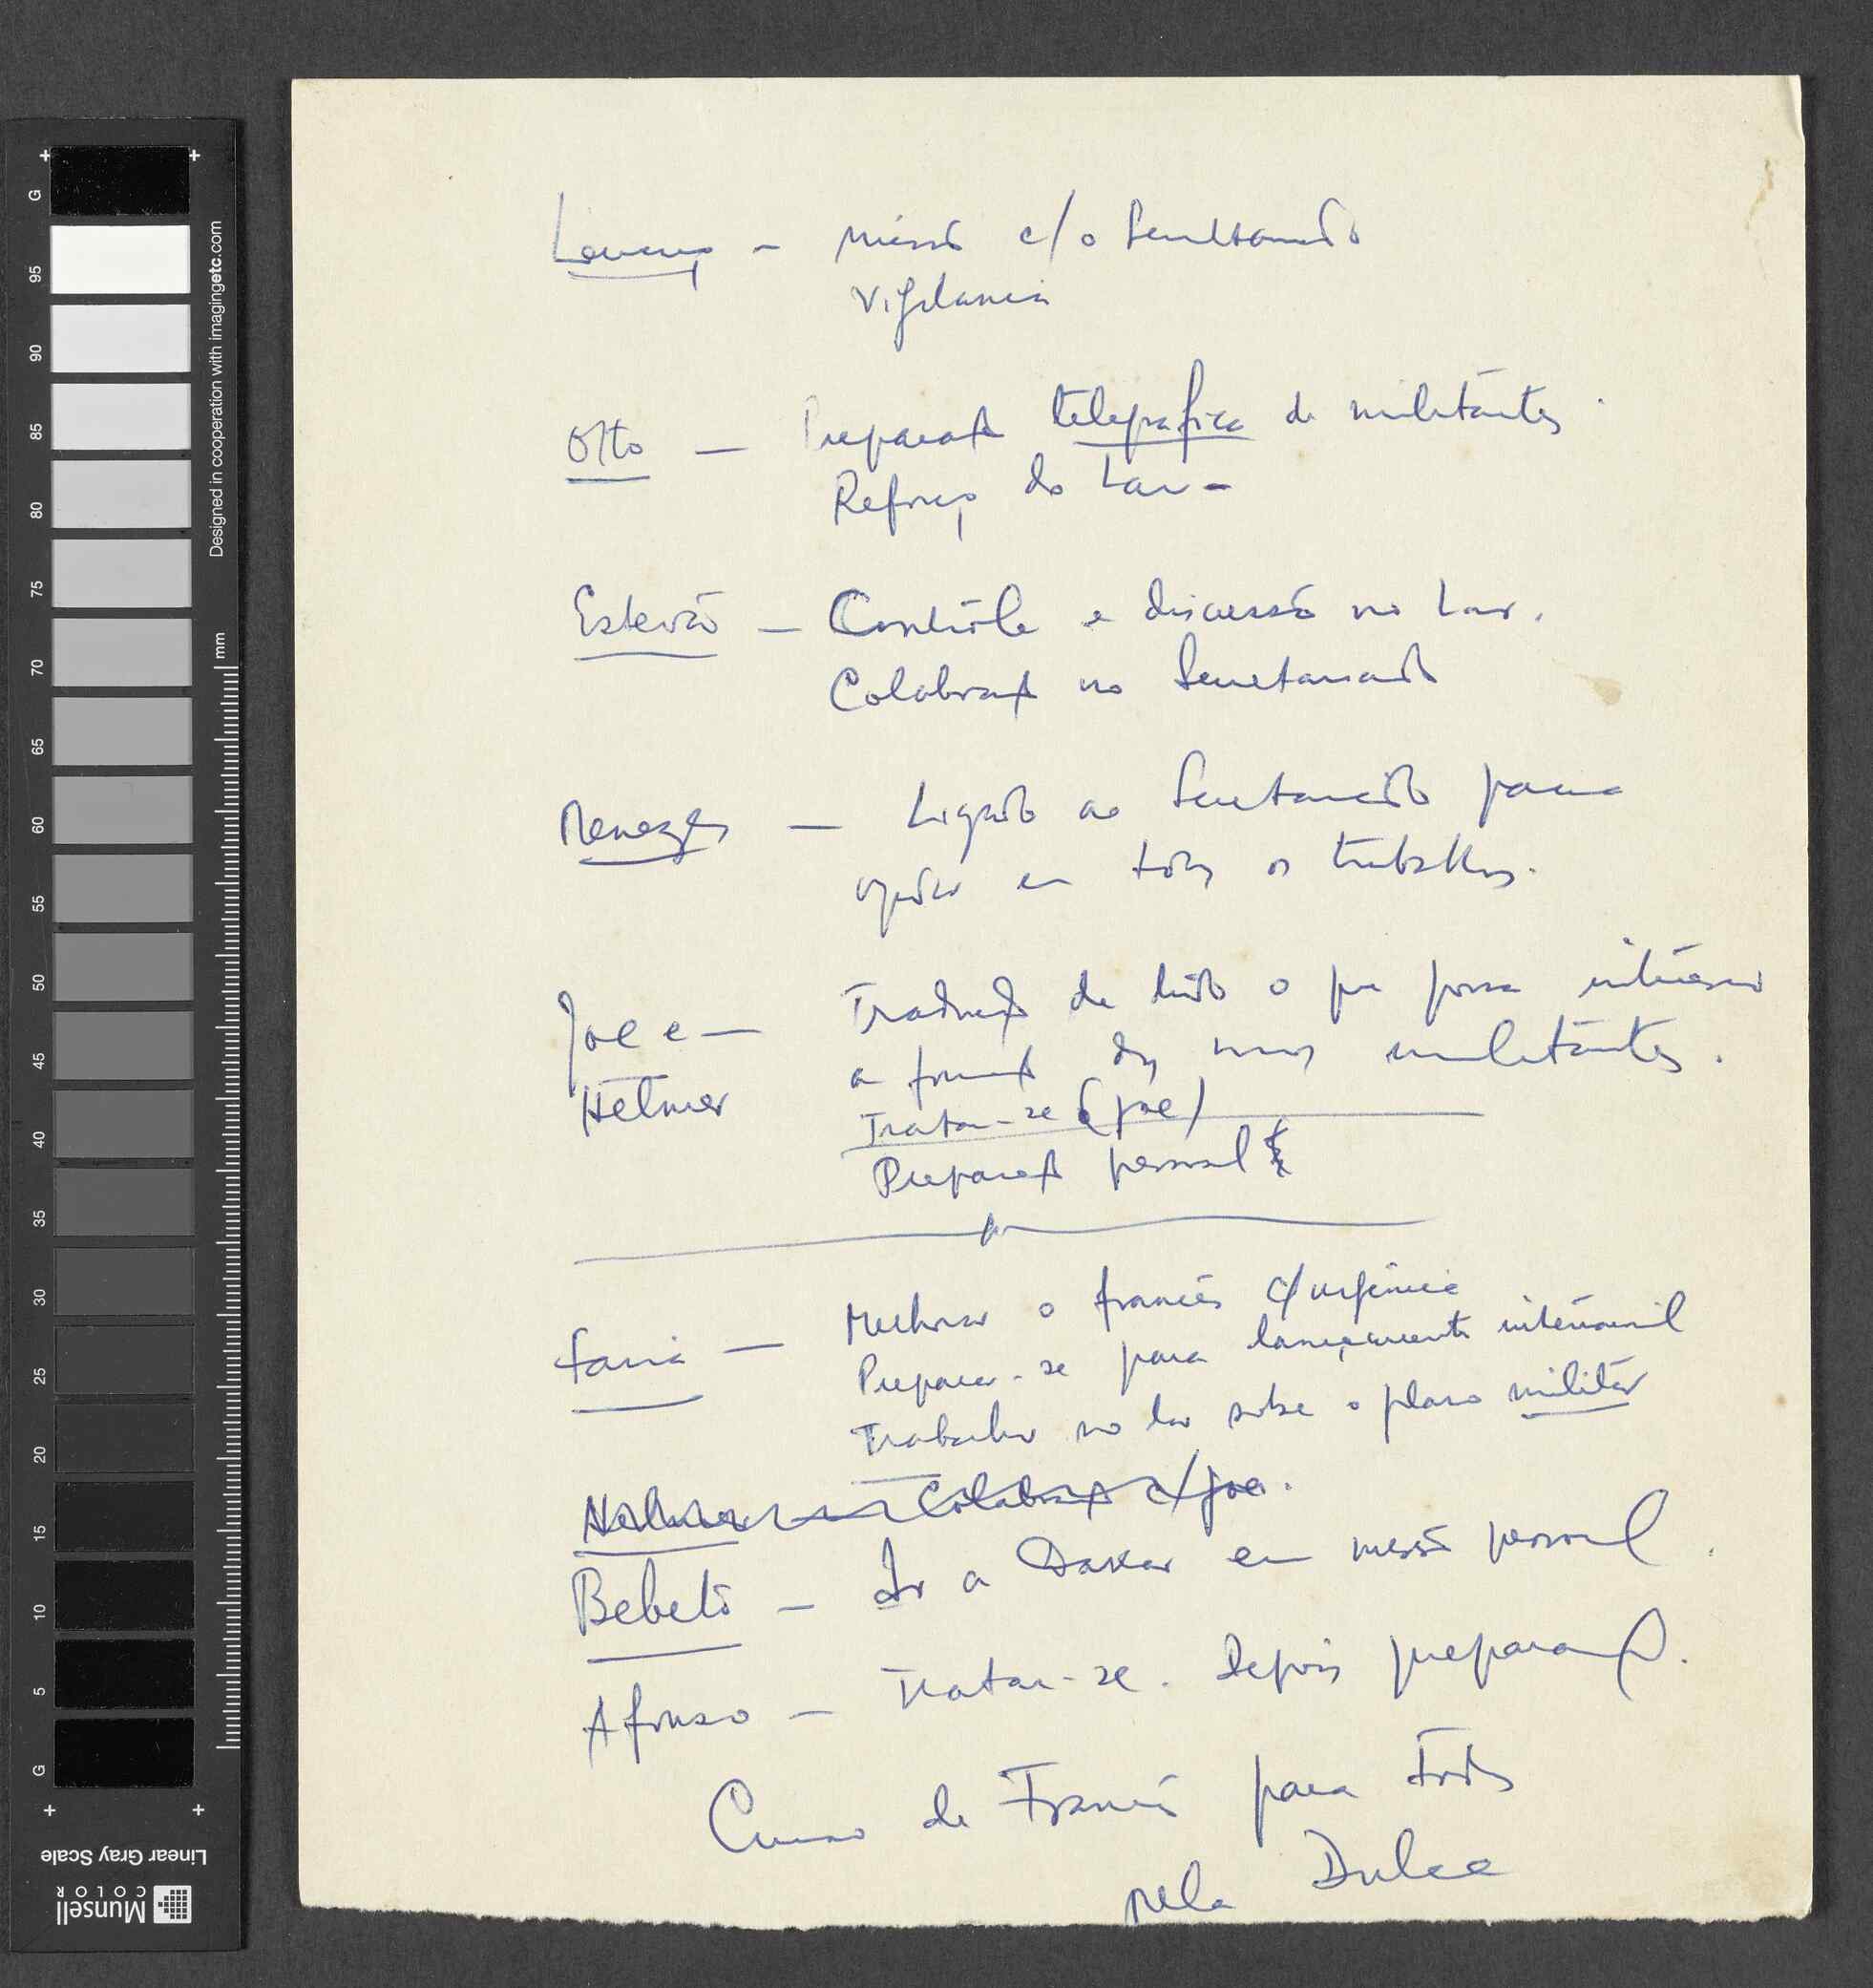 Lourenço — Missão c/o Secretariado
Vigilancia
Otto — Preparação telegrafica de militantes.
Reforço do Lar —
Estevão — Contrôle e discussão no Lar.
Colaboração no Secretariado
Menezes — Ligado ao Secretariado para
ajudar em todos os trabalhos.
Joel e — Tradução de tudo o que possa interessar
a formação dos nossos militantes.
Helmer
Tratar-se (Joel)
Preparação pessoal
Faria — Melhorar o francês c/urgência
Preparar-se para lançamento internacional
Trabalhar no lar sobre o plano militar
Colaboração c/Joel.
Bebeto — Ir a Dakar em missão pessoal.
Afonso — Tratar-se. Depois preparação.
Curso de Francês para todos
pela Dulce
G
95
90
85
80
75
70
65
60
55
50
45
40
35
30
25
20
15
10
5
G
mm
Designed in cooperation with imagingetc.com
Linear Gray Scale
Munsell
COLOR